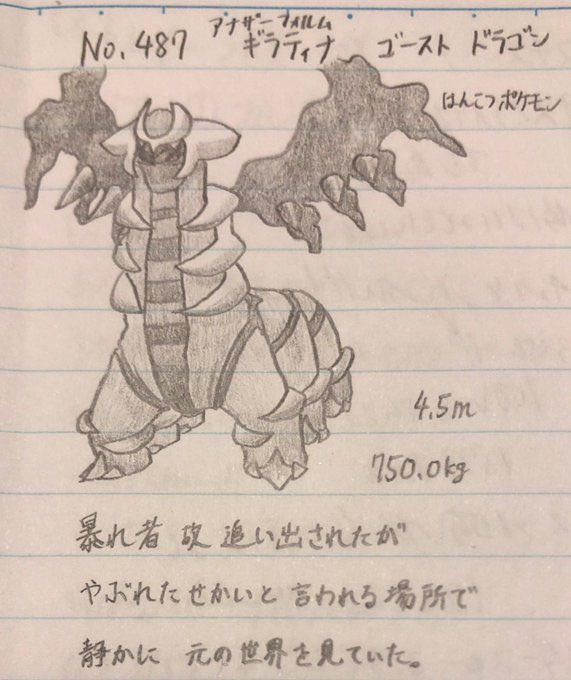 アナザーフォルム
No. 487 ギラティナ ゴースト ドラゴン
はんこつポケモン
4.5m
750.0kg
暴れ者 故 追い出されたが
やぶれたせかいと 言われる場所で
静かに 元の世界を見ていた。